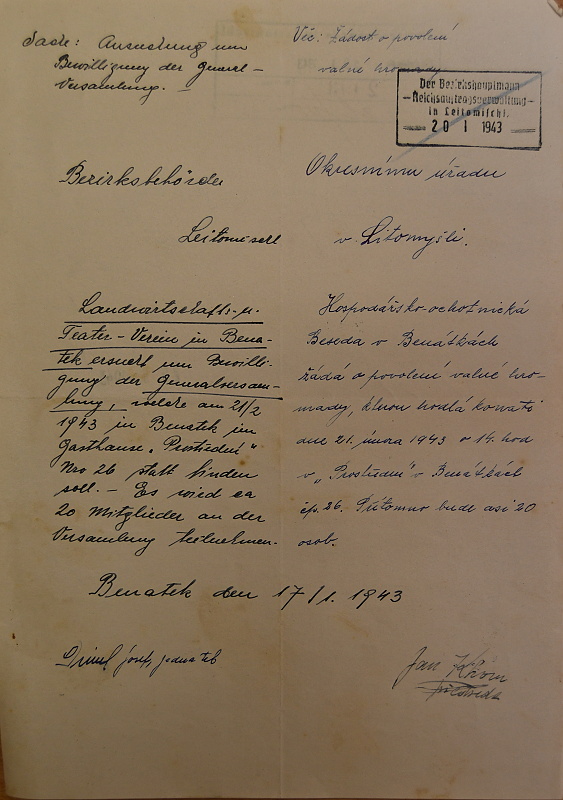 Sache: Ansuchung um
Bewilligung der General-
Versamlung. -
Věc: Žádost o povolení
valné hromady
Der Bezirkshauptmann
Reichsauftragsverwaltung
in Leitomischl.
20 I 1943
Bezirksbehörde
Leitomischl
Okresnímu úřadu
v Litomyšli.
Landwirtschafts- u.
Teater-Verein in Bena-
tek ersucht um Bewilli-
gung der Generalversam-
lung, welche am 21/2
1943 in Benatek im
Gasthause „Prostředni"
Nro 26 statt finden
soll. - Es wird ca
20 Mitglieder an der
Versamlung teilnehmen.
Hospodářsko-ochotnická
Beseda v Benátkách
žádá o povolení valné hro-
mady, kterou hodlá konati
dne 21. února 1943 o 14. hod
v „Prostředni" v Benátkách
čp. 26. Přítomno bude asi 20
osob.
Benatek den 17/1. 1943
Josef, jednatel
Jan
předseda